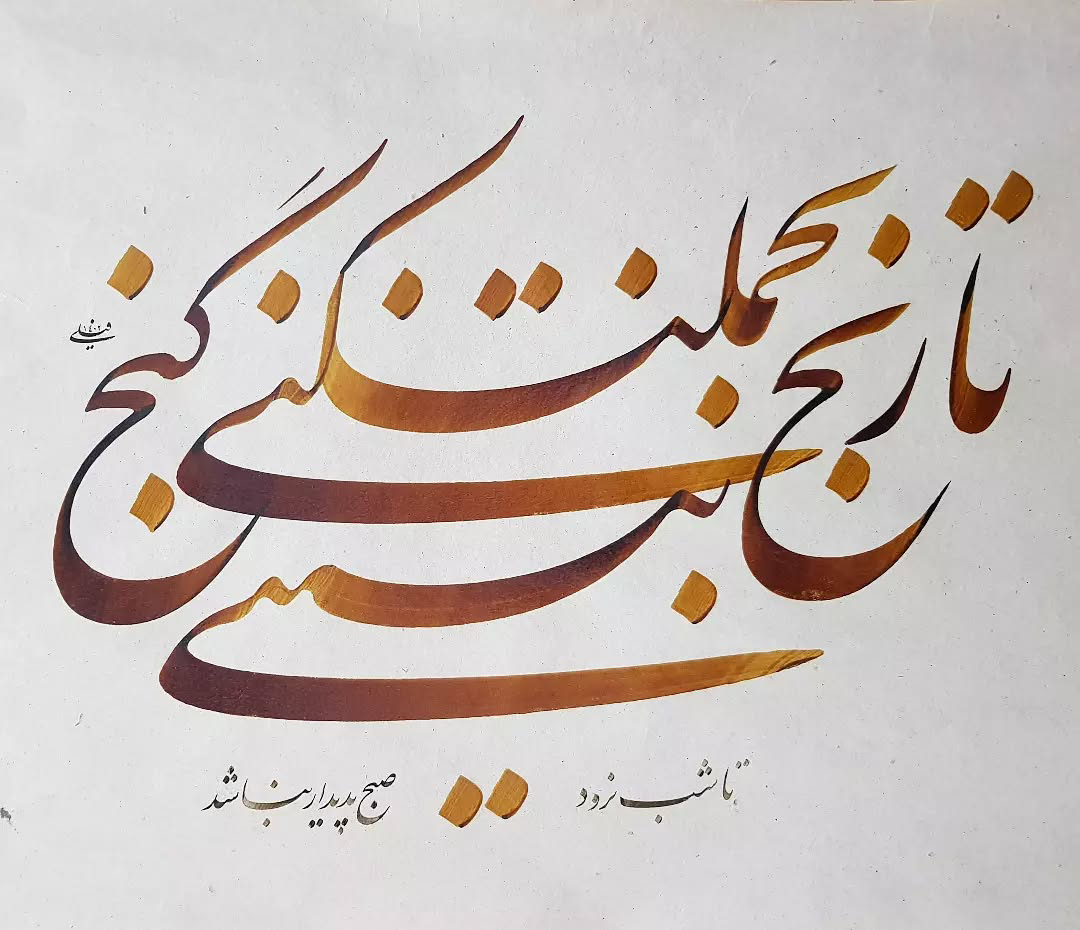 تا رنج تحمل نکنی گنج
نبینی
تا شب نرود صبح پدیدار نباشد
۱۴۰۲